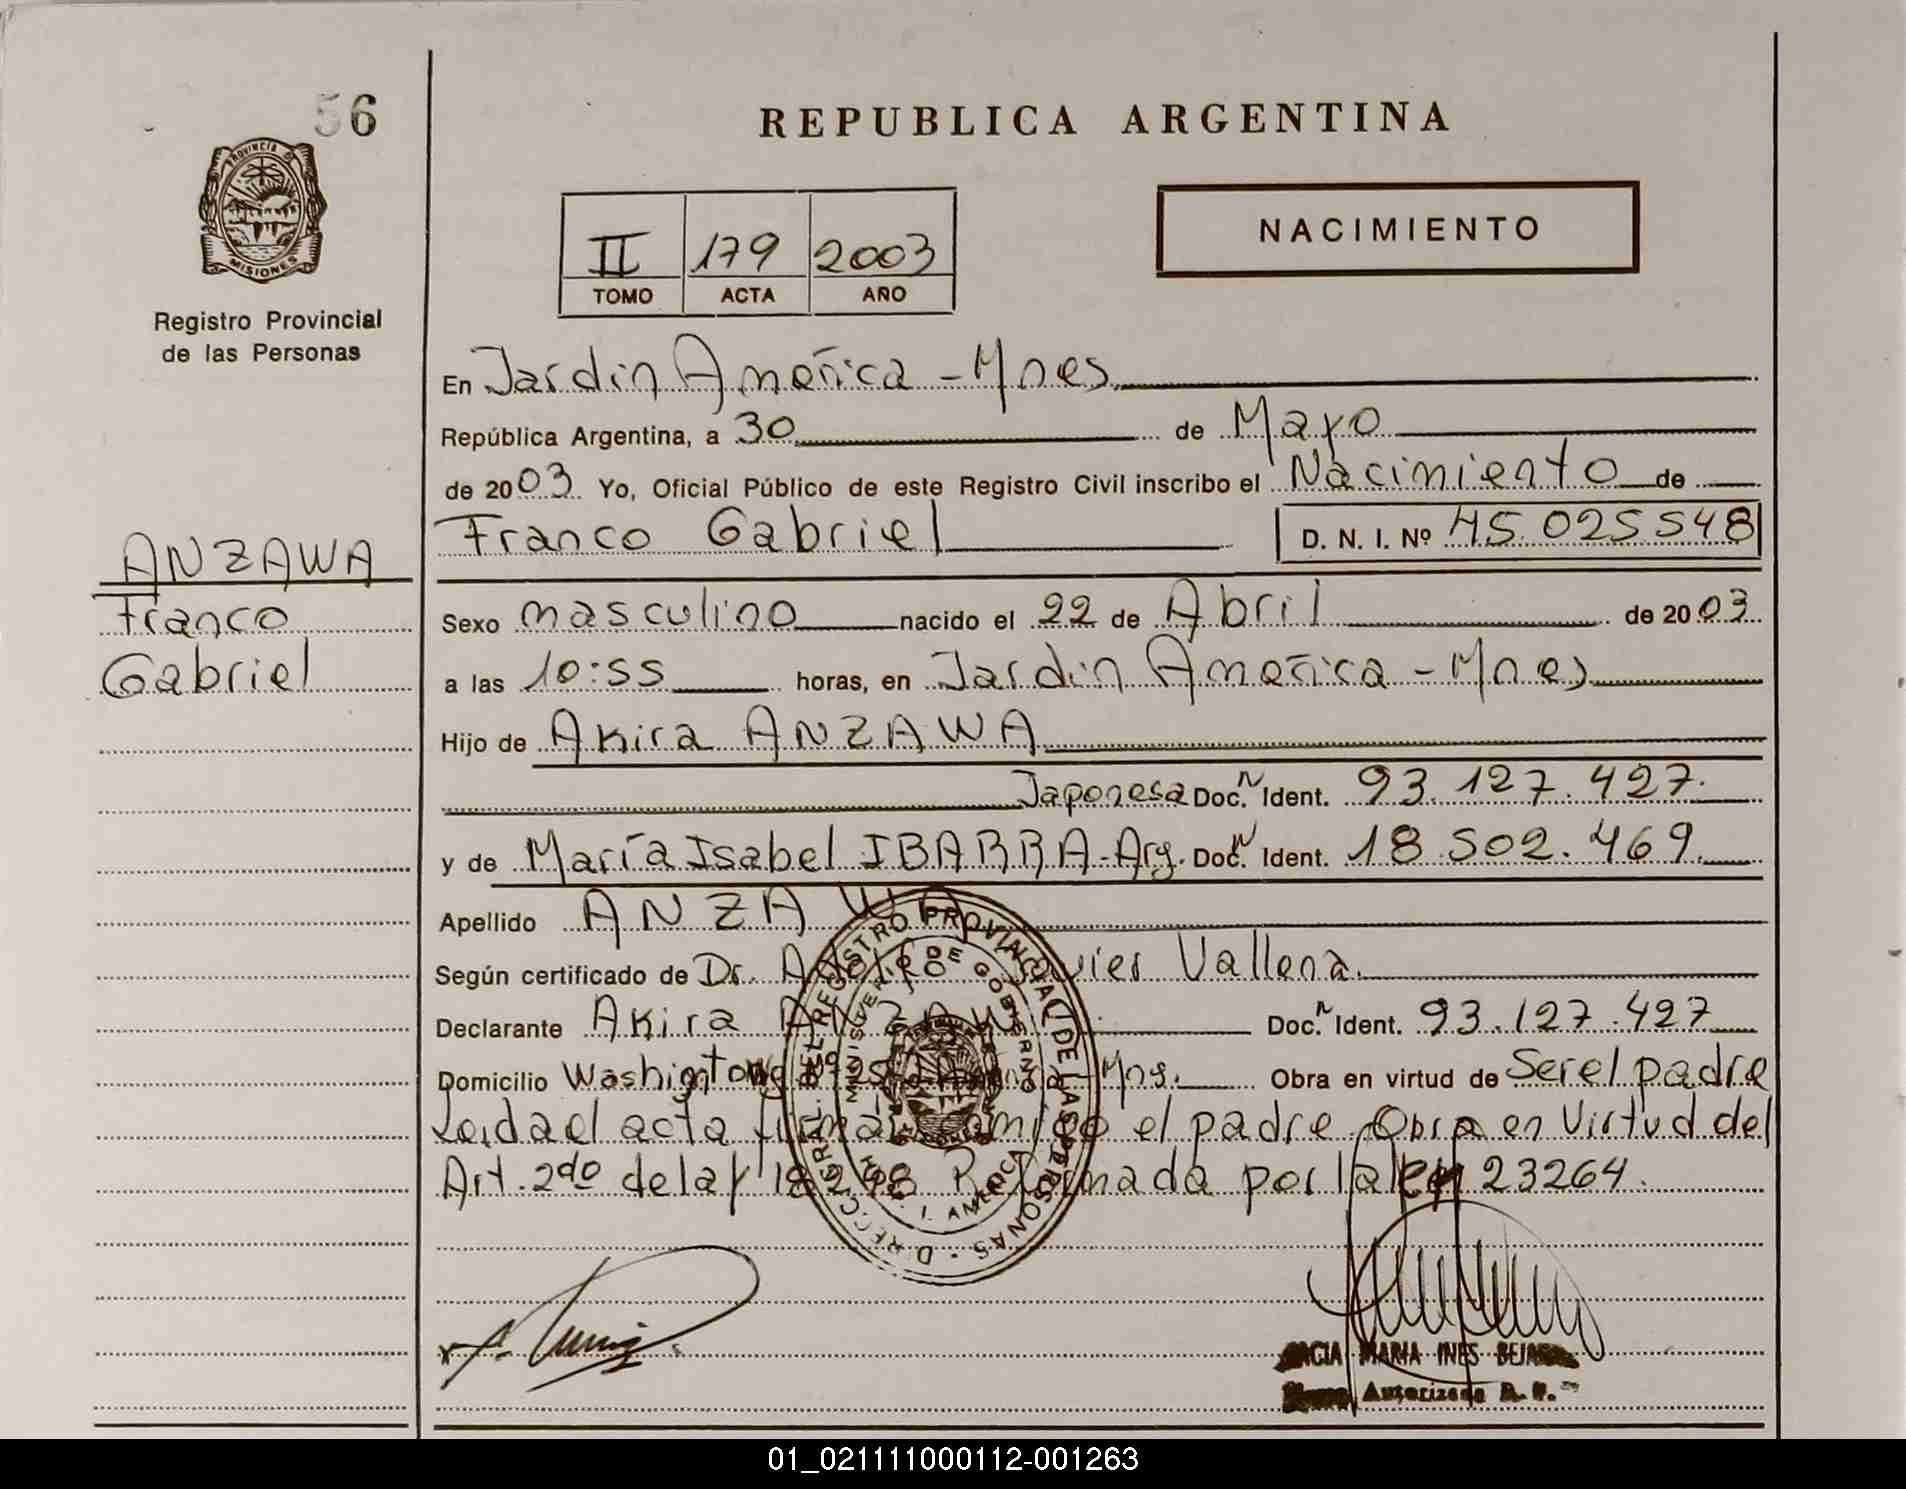 56
REPUBLICA ARGENTINA
PROVINCIA DE
MISIONES
Registro Provincial
de las Personas
II 179 2003
TOMO ACTA AÑO
NACIMIENTO
En Jardin America - Mnes
República Argentina, a 30 de Mayo
de 2003 Yo, Oficial Público de este Registro Civil inscribo el Nacimiento de
Franco Gabriel D. N. I. Nº 45.025548
ANZAWA
Franco
Gabriel
Sexo masculino nacido el 22 de Abril de 2003
a las 10:55 horas, en Jardin America - Mnes
Hijo de Akira ANZAWA
Japonesa Doc. N Ident. 93.127.427.
y de María Isabel IBARRA - Arg. Doc. N Ident. 18.502.469
Apellido ANZAWA
Según certificado de Dr. Vallena.
Declarante Akira ANZAWA Doc. N Ident. 93.127.427
Domicilio Mns. Obra en virtud de Ser el padre
Leida el acta el padre Obra en Virtud del
Art. 2do de la 18248 Reformada por la ley 23264.
DIRECC. GRAL. DEL REGISTRO PROVINCIAL DE LAS PERSONAS
MINISTERIO DE GOBIERNO
I. AMERICA
MARIA INES
Autorizada
01_021111000112-001263